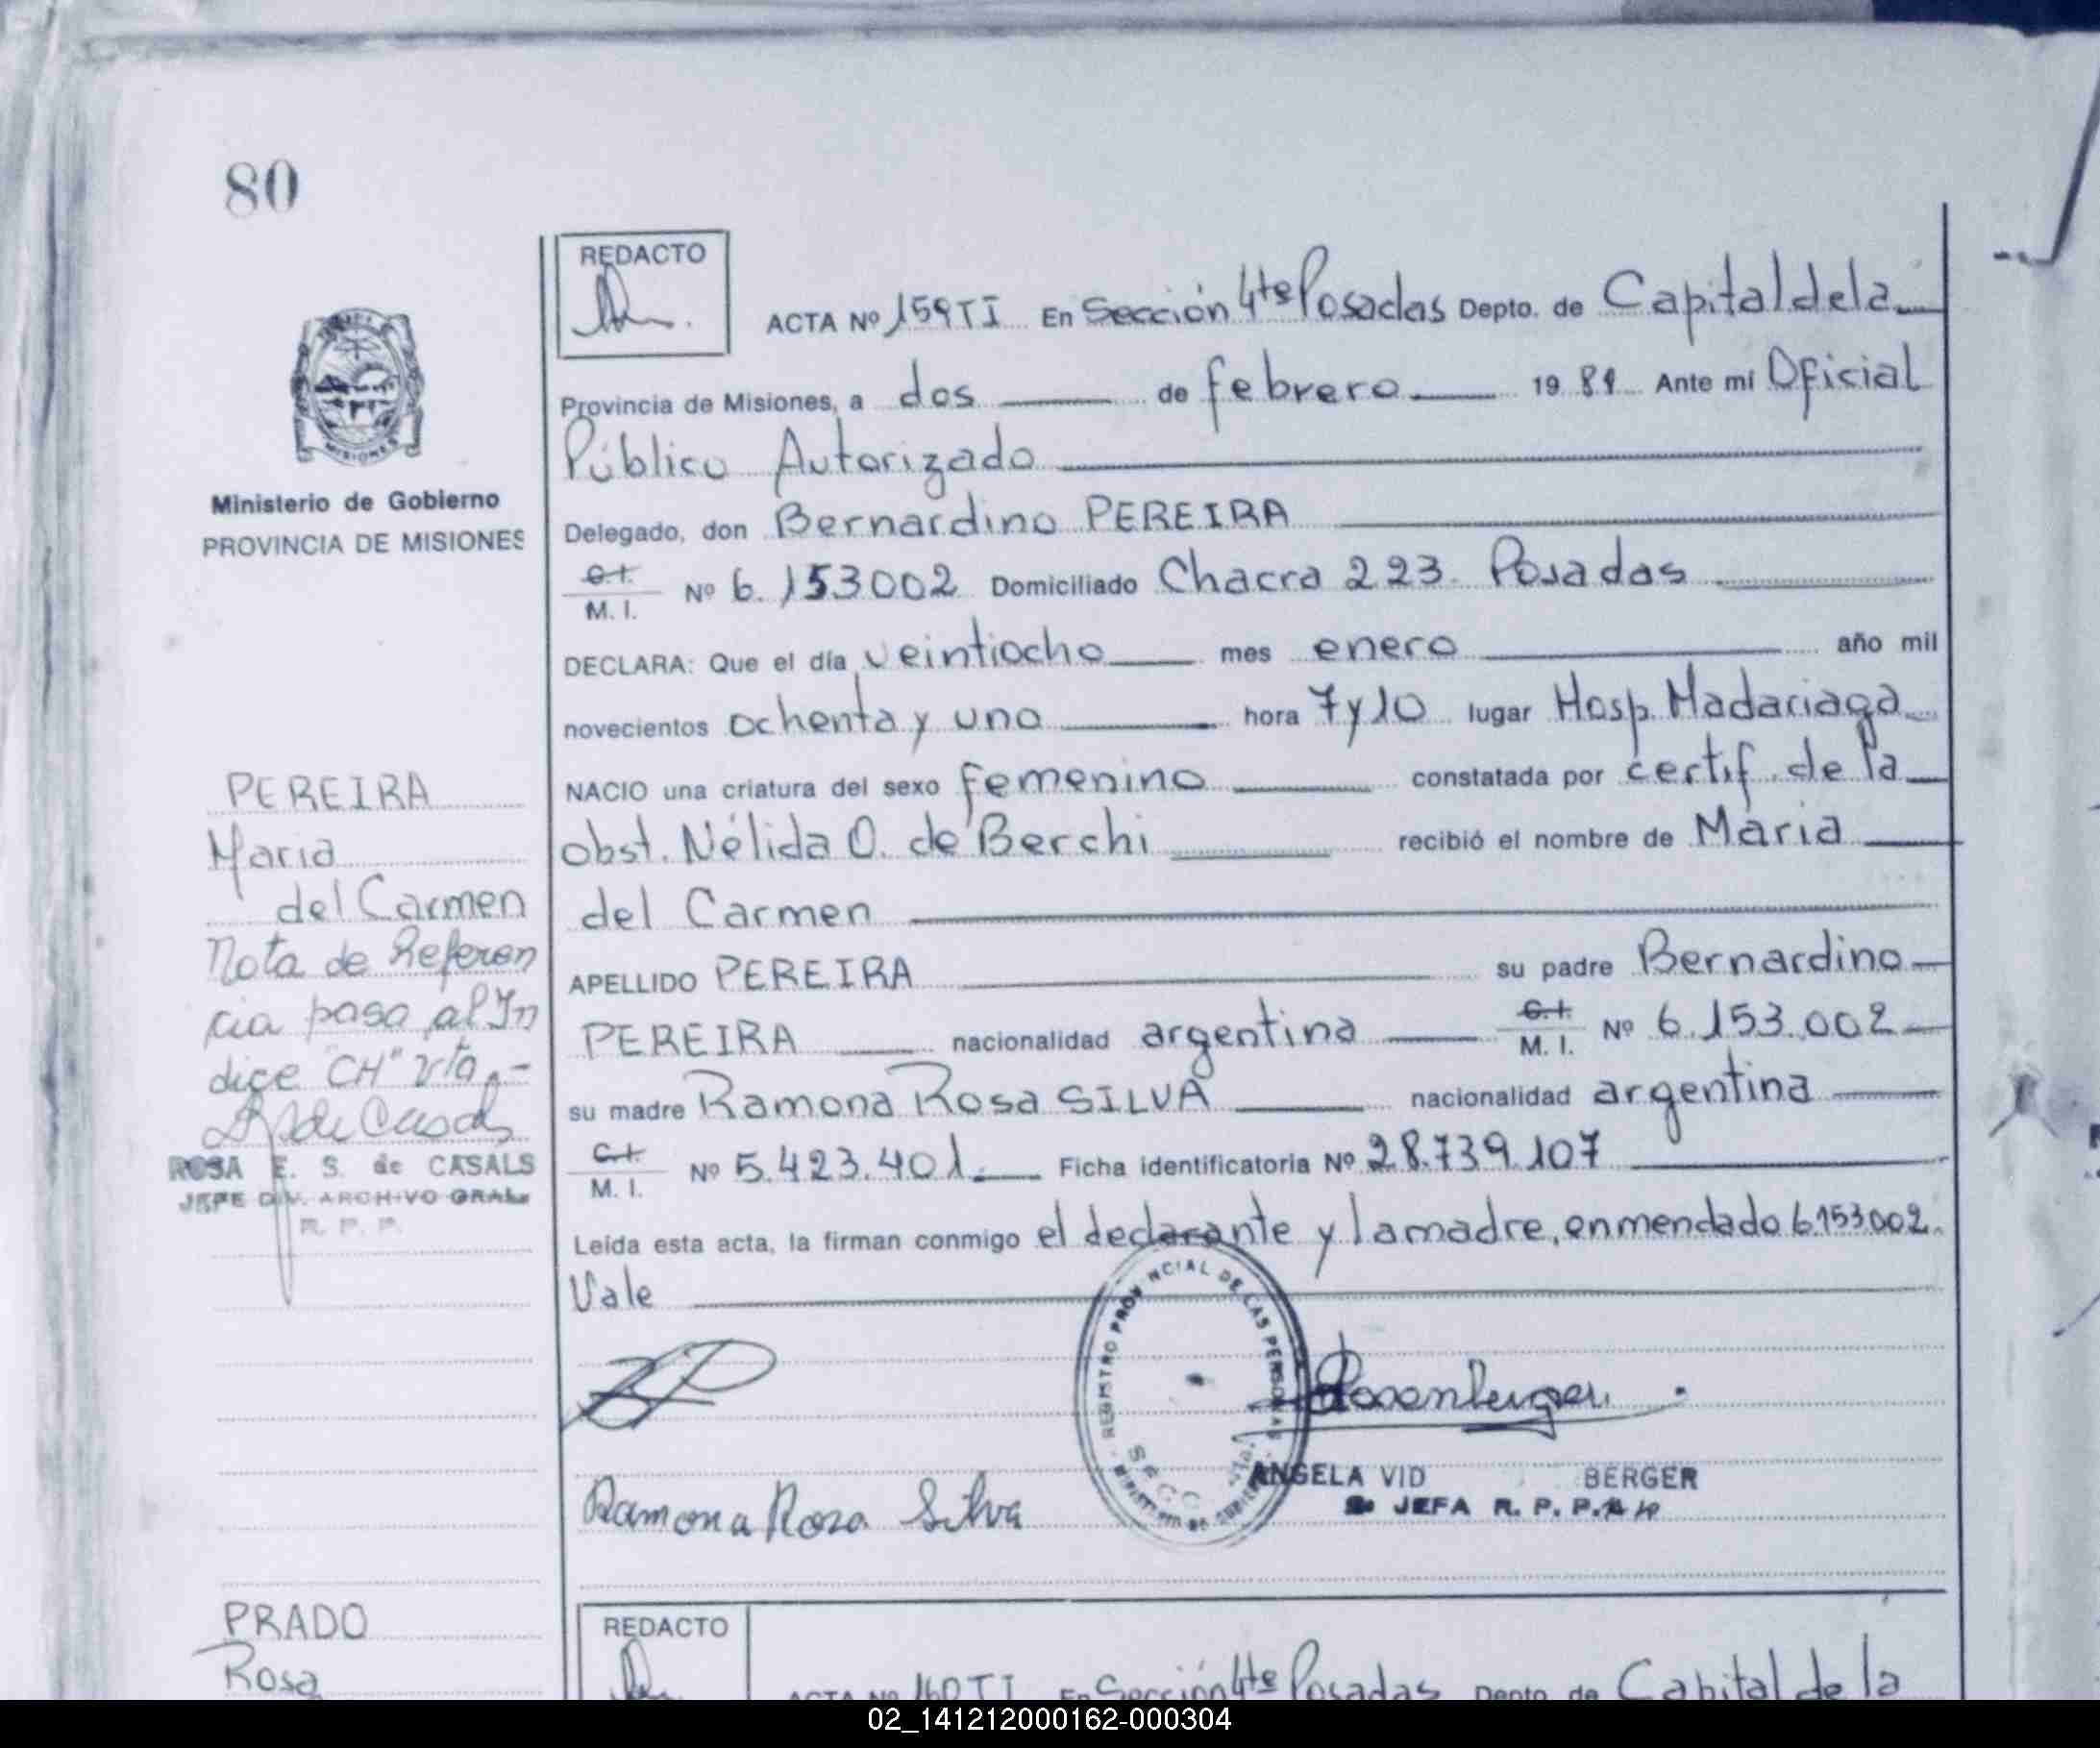 80
REDACTO
ACTA Nº 159 T I En Sección 4ta Posadas Depto. de Capital de la
Provincia de Misiones, a dos de febrero 1981 Ante mí Oficial
Público Autorizado
Delegado, don Bernardino PEREIRA
C.I.
M. I. Nº 6.153002 Domiciliado Chacra 223. Posadas
DECLARA: Que el día veintiocho mes enero año mil
novecientos ochenta y uno hora 7 y 10 lugar Hosp. Madariaga
NACIO una criatura del sexo femenino constatada por certif. de la
obst. Nélida O. de Berchi recibió el nombre de Maria
del Carmen
APELLIDO PEREIRA su padre Bernardino
PEREIRA nacionalidad argentina C.I. M. I. Nº 6.153.002
su madre Ramona Rosa SILVA nacionalidad argentina
C.I.
M. I. Nº 5.423.401. Ficha identificatoria Nº 28.739.107
Leída esta acta, la firman conmigo el declarante y la madre, enmendado 6.153.002.
Vale
REGISTRO PROVINCIAL DE LAS PERSONAS
Ramona Rosa Silva
Rosenberger
ANGELA VID BERGER
JEFA R. P. P.
MISIONES
Ministerio de Gobierno
PROVINCIA DE MISIONES
PEREIRA
Maria
del Carmen
Nota de Referen
cia paso al In
dice "CH" vta.-
ROSA E. S. de CASALS
JEFE DIV. ARCHIVO GRAL.
R. P. P.
PRADO
Rosa
REDACTO
ACTA Nº 160 T I En Sección 4ta Posadas Depto. de Capital de la
02_141212000162-000304